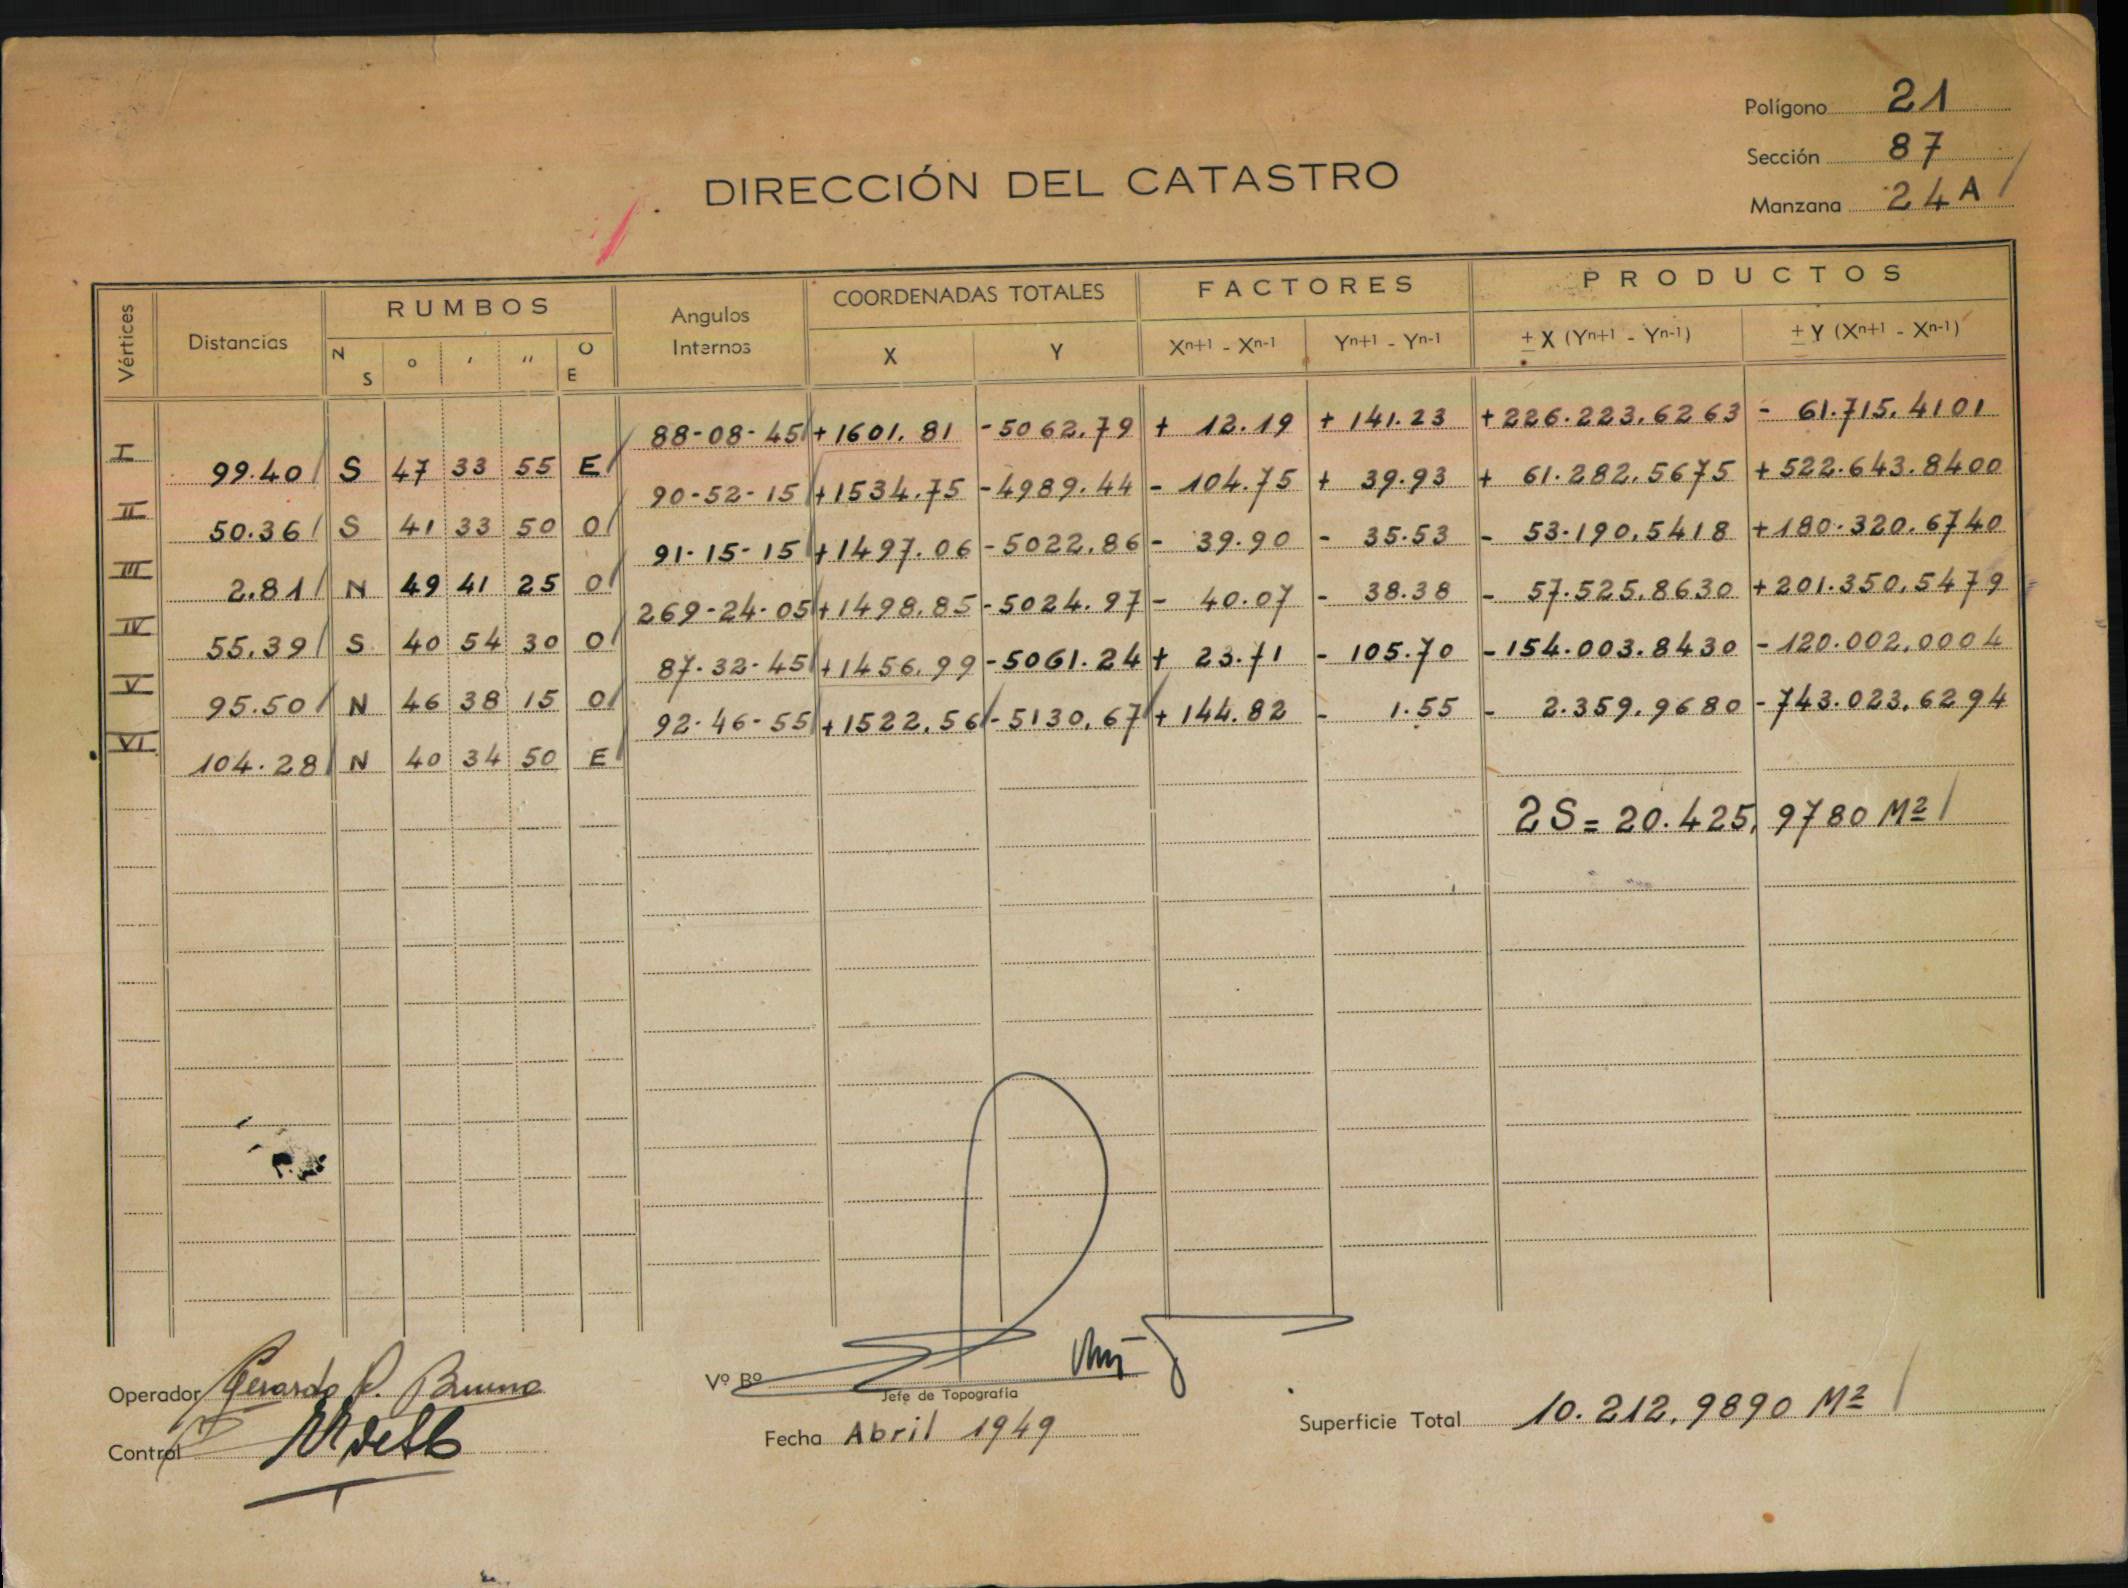 Polígono 21
Sección 87
Manzana 24A
DIRECCIÓN DEL CATASTRO
Vértices Distancias RUMBOS Angulos Internos COORDENADAS TOTALES FACTORES PRODUCTOS
N S ° ' " O E X Y Xn+1 - Xn-1 Yn+1 - Yn-1 ± X (Yn+1 - Yn-1) ± Y (Xn+1 - Xn-1)
88-08-45 +1601.81 -5062.79 + 12.19 + 141.23 +226.223,6263 - 61.715,4101
I 99.40 S 47 33 55 E
90-52-15 +1534.75 -4989.44 - 104.75 + 39.93 + 61.282,5675 +522.643.8400
II 50.36 S 41 33 50 O
91-15-15 +1497.06 -5022.86 - 39.90 - 35.53 - 53.190,5418 +180.320.6740
III 2.81 N 49 41 25 O
269-24-05 +1498.85 -5024.97 - 40.07 - 38.38 - 57.525.8630 +201.350,5479
IV 55.39 S 40 54 30 O
87-32-45 +1456.99 -5061.24 + 23.71 - 105.70 -154.003.8430 -120.002,0004
V 95.50 N 46 38 15 O
92-46-55 +1522,56 -5130,67 +144.82 - 1.55 - 2.359,9680 -743.023,6294
VI 104.28 N 40 34 50 E
2S = 20.425, 9780 M2
Operador Gerardo P. Bruno
Vº Bº
Jefe de Topografía
Control
Fecha Abril 1949
Superficie Total 10.212,9890 M2